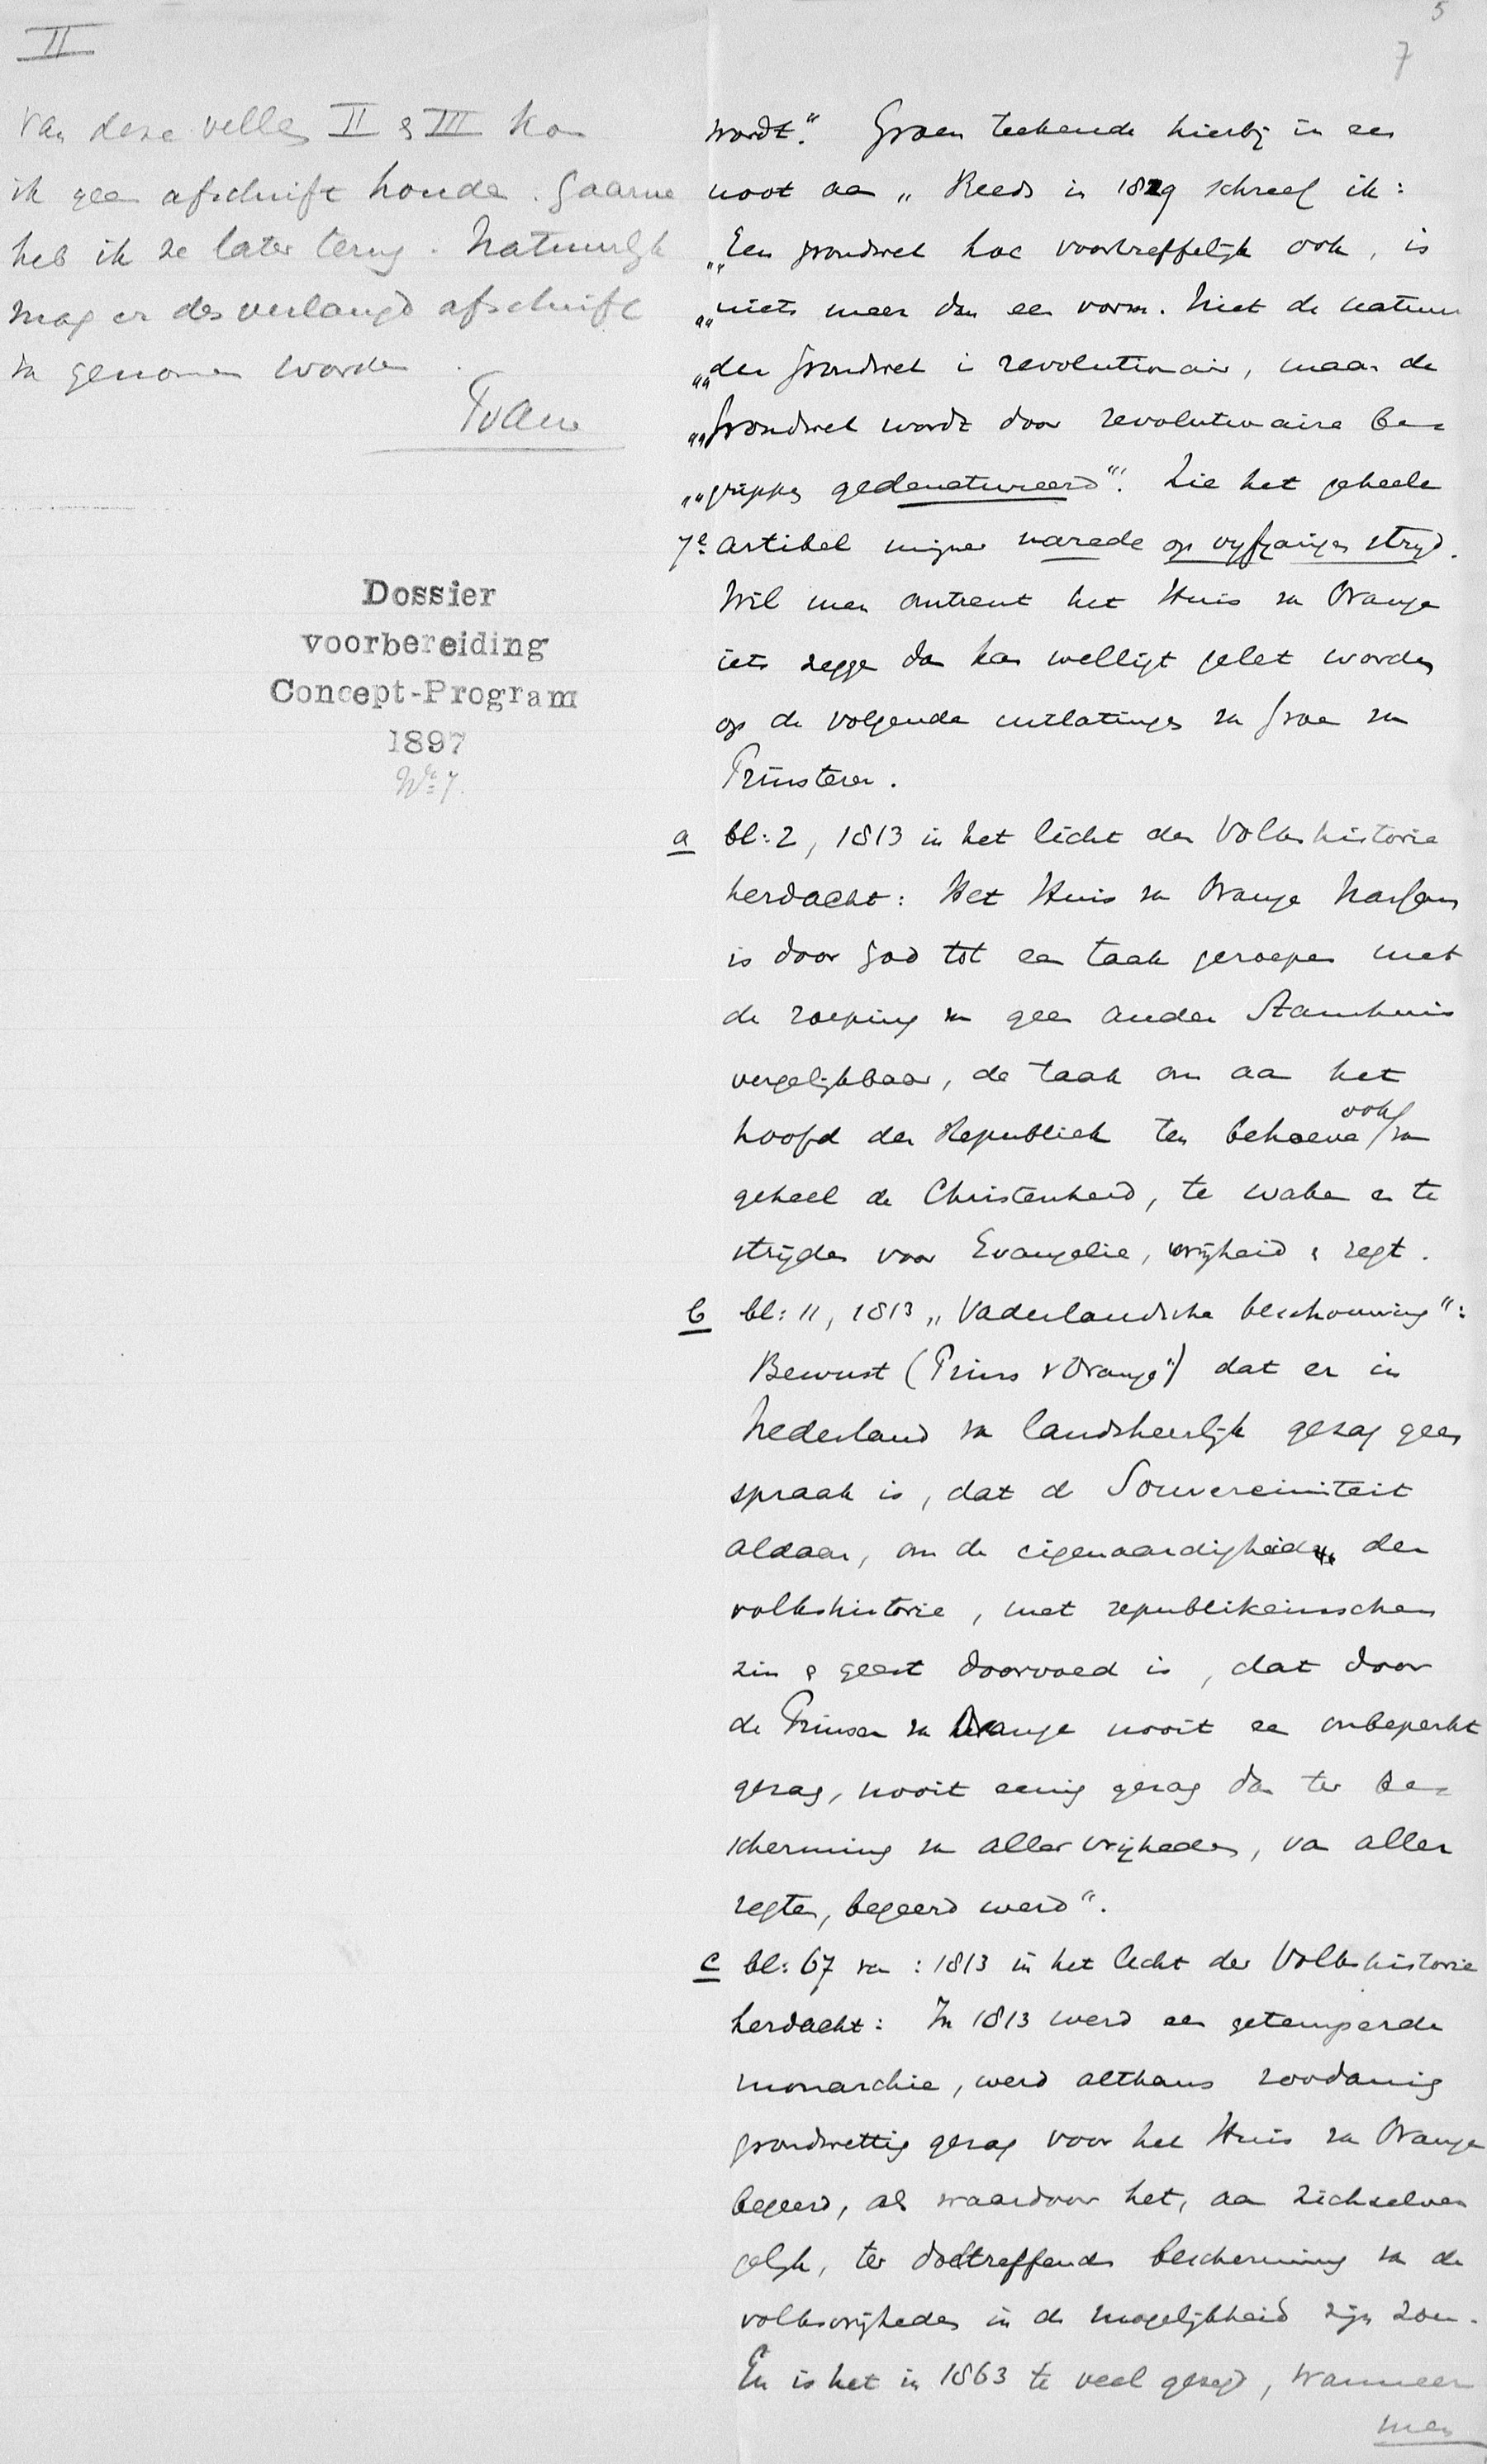 II
Van deze vellen II & III kon
ik geen afschrift houden. Gaarne
heb ik ze later terug. Natuurlijk
mag er des verlangd afschrift
van genomen worden.
Dossier
voorbereiding
Concept-Program
1897
No 7.
5
7
wordt." Groen teekende hierbij in een
noot aan „Reeds in 1829 schreef ik:
„„Een grondwet hoe voortreffelijk ook, is
„„niets meer dan een vorm. Niet de natuur
„„der grondwet is revolutionair, maar de
„„grondwet wordt door revolutionaire be-
„„grippen gedenatureerd"". Zie het geheele
7e artikel mijner narede op vijfjarigen strijd.
Wil men omtrent het Huis van Oranje
iets zeggen dan kan welligt gelet worden
op de volgende uitlatingen van Groen van
Prinsterer.
a bl: 2, 1813 in het licht der Volkshistorie
herdacht: Het Huis van Oranje Nassau
is door God tot een taak geroepen met
de roeping van geen ander Stamhuis
vergelijkbaar, de taak om aan het
hoofd der Republiek ten behoeve ook van
geheel de Christenheid, te waken en te
strijden voor Evangelie, vrijheid & regt.
b bl: 11, 1813 „Vaderlandsche beschouwing":
Bewust (Prins v Oranje") dat er in
Nederland van landsheerlijk gezag geen
spraak is, dat de Souvereiniteit
aldaar, om de eigenaardigheid der
volkshistorie, met republikeinschen
zin & geest doorvoed is, dat door
de Prinsen van Oranje nooit een onbeperkt
gezag, nooit eenig gezag dan ter be-
scherming van aller vrijheden, van aller
regten, begeerd werd".
c bl: 67 van: 1813 in het licht der Volkshistorie
herdacht: In 1813 werd een getemperde
monarchie, werd althans zoodanig
grondwettig gezag voor het Huis van Oranje
begeerd, als waardoor het, aan zichzelven
gelijk, ter doeltreffende bescherming van de
volksvrijheden in de mogelijkheid zijn zou.
En is het in 1863 te veel gezegd, wanneer
men